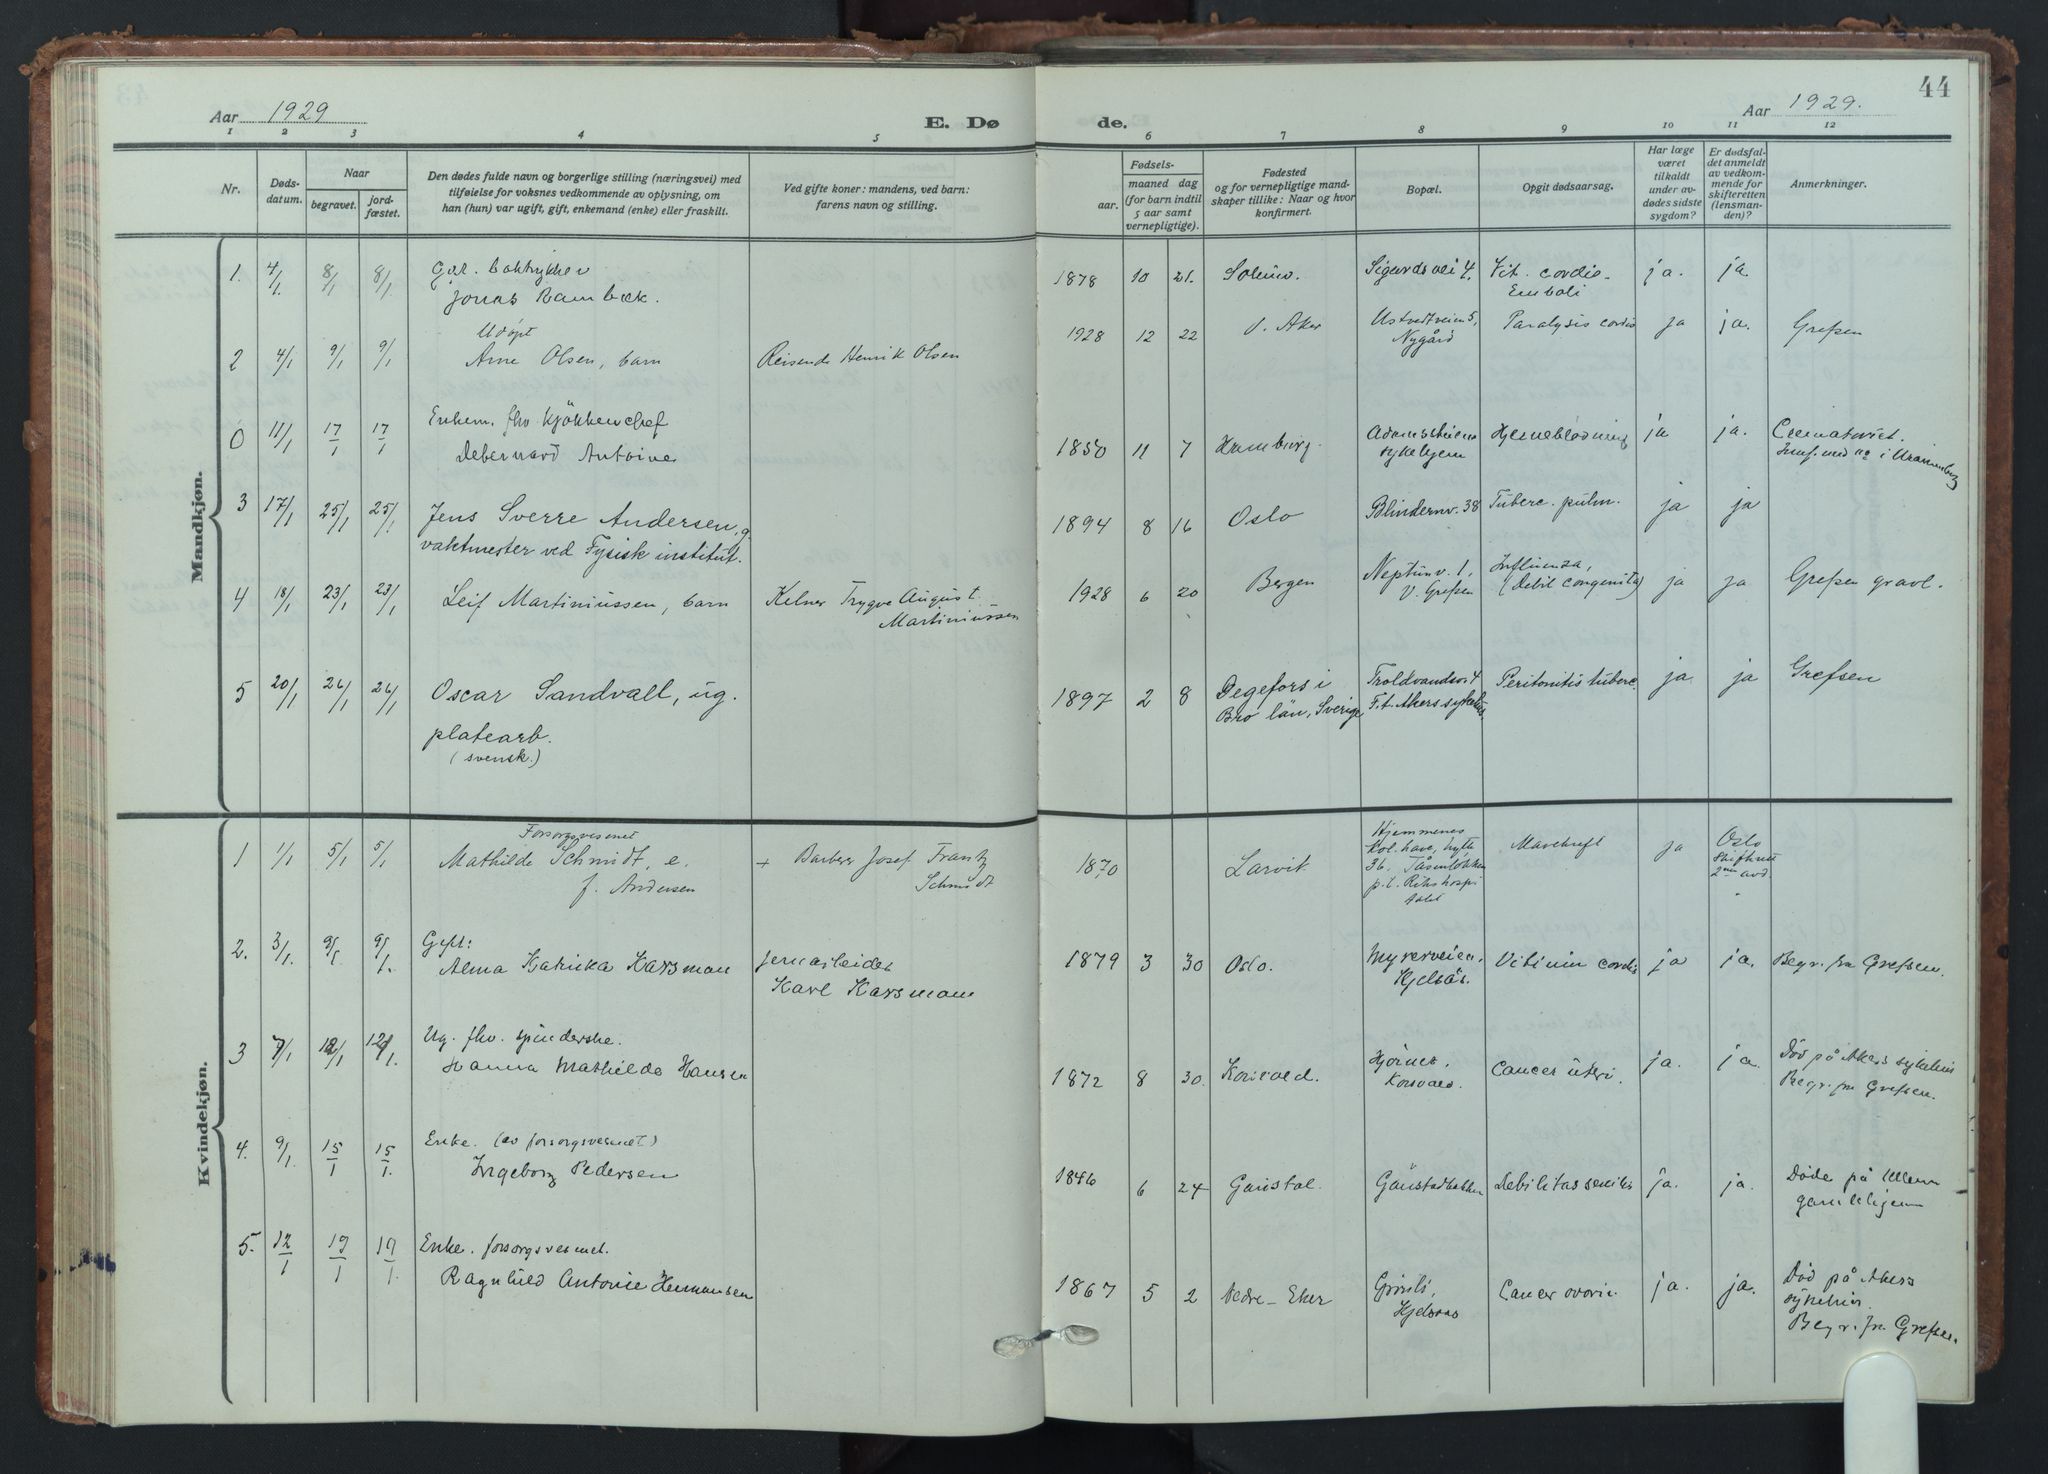 Aar 1929
E. Dø
1 2 3 4 5
Nr.
Døds-
datum.
Naar
begravet.
jord-
fæstet.
Den dødes fulde navn og borgerlige stilling (næringsvei) med
tilføielse for voksnes vedkommende av oplysning, om
han (hun) var ugift, gift, enkemand (enke) eller fraskilt.
Ved gifte koner: mandens, ved barn:
farens navn og stilling.
Mandkjøn.
1. 4/1. 8/1 8/1
Jonas Rambæk.
Udöpt
2 4/1 9/1 9/1 Arne Olsen, barn Reisende Henrik Olsen
Enkem. fhv. Kjökkenchef
0 11/1 17/1 17/1 Debernard Antoine
3 17/1 25/1 25/1 Jens Sverre Andersen, g.
vaktmester ved Fysisk institut.
4 18/1 23/1 23/1 Leif Martiniussen, barn Kelner Trygve August
Martiniussen
5 20/1 26/1 26/1 Oscar Sandvall, ug.
platearb.
(svensk.)
Kvindekjøn.
Forsorgsvesenet
1 1/1 5/1 5/1 Mathilde Schmidt, e. + Barberer Josef Frantz
f. Andersen Schmidt
2. 3/1. 9/1 9/1. Gift:
Alma Katrika Karsman Jernarbeider
Karl Karsmann
3 7/1 12/1 12/1. Ug. fhv. spinderske.
Hanna Mathilde Hansen
4. 9/1. 15/1 15/1. Enke. (av forsorgsvesenet)
Ingeborg Pedersen
5. 12/1 19/1 19/1. Enke. forsorgsvesenet.
Ragnhild Antonie Hermansen
44
de.
Aar 1929.
6 7 8 9 10 11 12
Fødsels-
aar.
maaned dag
(for barn indtil
5 aar samt
vernepligtige).
Fødested
og for vernepligtige mand-
skaper tillike: Naar og hvor
konfirmert.
Bopæl.
Opgit dødsaarsag.
Har læge
været
tilkaldt
under av-
dødes sidste
sygdom?
Er dødsfal-
det anmeldt
av vedkom-
mende for
skifteretten
(lensman-
den)?
Anmerkninger.
1878 10 21. Sigurdsvei 4. Vit. cordis - ja. ja.
Emboli
1928 12 22 V. Aker Ustvedtveien 5, Paralysis cordis ja ja. Grefsen
Nygård
1850 11 7 Hamburg. Adamstuens Hjerneblødning ja ja. Crematoriet.
sykehjem
1894 8 16 Oslo Blindernv. 38 Tuberc. pulm. ja ja
1928 6 20 Bergen Neptunv. 1, Influensa, ja ja Grefsen gravl.
V. Grefsen (Debil congenita)
1897 2 8 Degefors i Troldvandsv. 4 Peritonitis tuberc. ja ja Grefsen
län, Sverige F.t. Akers sykehus.
1870 Larvik Hjemmenes Mavekreft ja Oslo
Kol. have, hytte Skifteret
36. Tåsenløkken 2nen avd.
p.t. Rikshospi
talet
1879 3 30 Oslo. Myrerveien, Vitium cordis ja ja. Begr. fra Grefsen.
Kjelsås.
1872 8 30. Korsvold. Hjörnet, Cancer uteri. ja. ja. Död på Akers sykehus
Korsvold. Begr. fra Grefsen.
1846 6 24 Gaustad. Gaustadbakken Debilitas senilis ja. ja. Døde på Ullern
gamlehjem
1867 5 2 Nedre-Eker Grinili, Cancer ovarii. ja. ja. Död på Akers
Kjelsaas sykehus.
Begr. fra Grefsen.